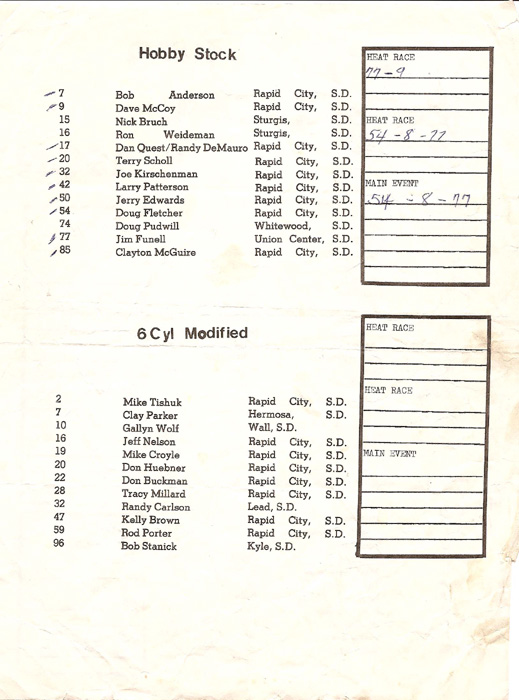 Hobby Stock
7 Bob Anderson Rapid City, S.D.
9 Dave McCoy Rapid City, S.D.
15 Nick Bruch Sturgis, S.D.
16 Ron Weideman Sturgis, S.D.
17 Dan Quest/Randy DeMauro Rapid City, S.D.
20 Terry Scholl Rapid City, S.D.
32 Joe Kirschenman Rapid City, S.D.
42 Larry Patterson Rapid City, S.D.
50 Jerry Edwards Rapid City, S.D.
54 Doug Fletcher Rapid City, S.D.
74 Doug Pudwill Whitewood, S.D.
77 Jim Funell Union Center, S.D.
85 Clayton McGuire Rapid City, S.D.
HEAT RACE
77-9
HEAT RACE
54-8-77
MAIN EVENT
54-8-77
6 Cyl Modified
2 Mike Tishuk Rapid City, S.D.
7 Clay Parker Hermosa, S.D.
10 Gallyn Wolf Wall, S.D.
16 Jeff Nelson Rapid City, S.D.
19 Mike Croyle Rapid City, S.D.
20 Don Huebner Rapid City, S.D.
22 Don Buckman Rapid City, S.D.
28 Tracy Millard Rapid City, S.D.
32 Randy Carlson Lead, S.D.
47 Kelly Brown Rapid City, S.D.
59 Rod Porter Rapid City, S.D.
96 Bob Stanick Kyle, S.D.
HEAT RACE
HEAT RACE
MAIN EVENT